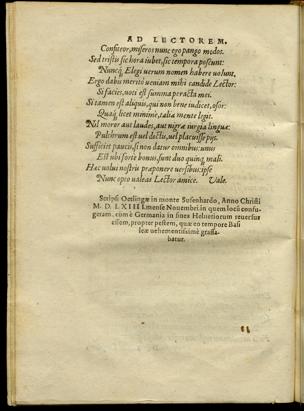 AD LECTOREM.
Confiteor, miseros nunc ego pango modos.
Sed tristis sic hora iubet, sic tempora poscunt:
Nuncq́; Elegi uerum nomen habere uolunt,
Ergo dabis meritò ueniam mihi candide Lector:
Si facies, uoti est summa peracta mei.
Si tamen est aliquis, qui non bene iudicet, osor:
Quaq; licet minimè, talia mente legit.
Nil moror aut laudes, aut nigræ iurgia linguæ:
Pulchrum est uel doctis, uel placuisse pijs.
Sufficiet paucis, si non datur omnibus: unus
Est ubi forte bonus, sunt duo quinq; mali.
Hæc uolui nostris præponere uersibus: ipse
Nunc opto ualeas Lector amice. Vale.
Scripsi Oetlingæ in monte Susenhardo, Anno Christi
M. D. LXIIII. mense Nouembri. in quem locũ confu-
geram, cùm è Germania in fines Heluetiorum reuersus
essem, propter pestem, quæ eo tempore Basi
leæ uehementissimè grassa-
batur.